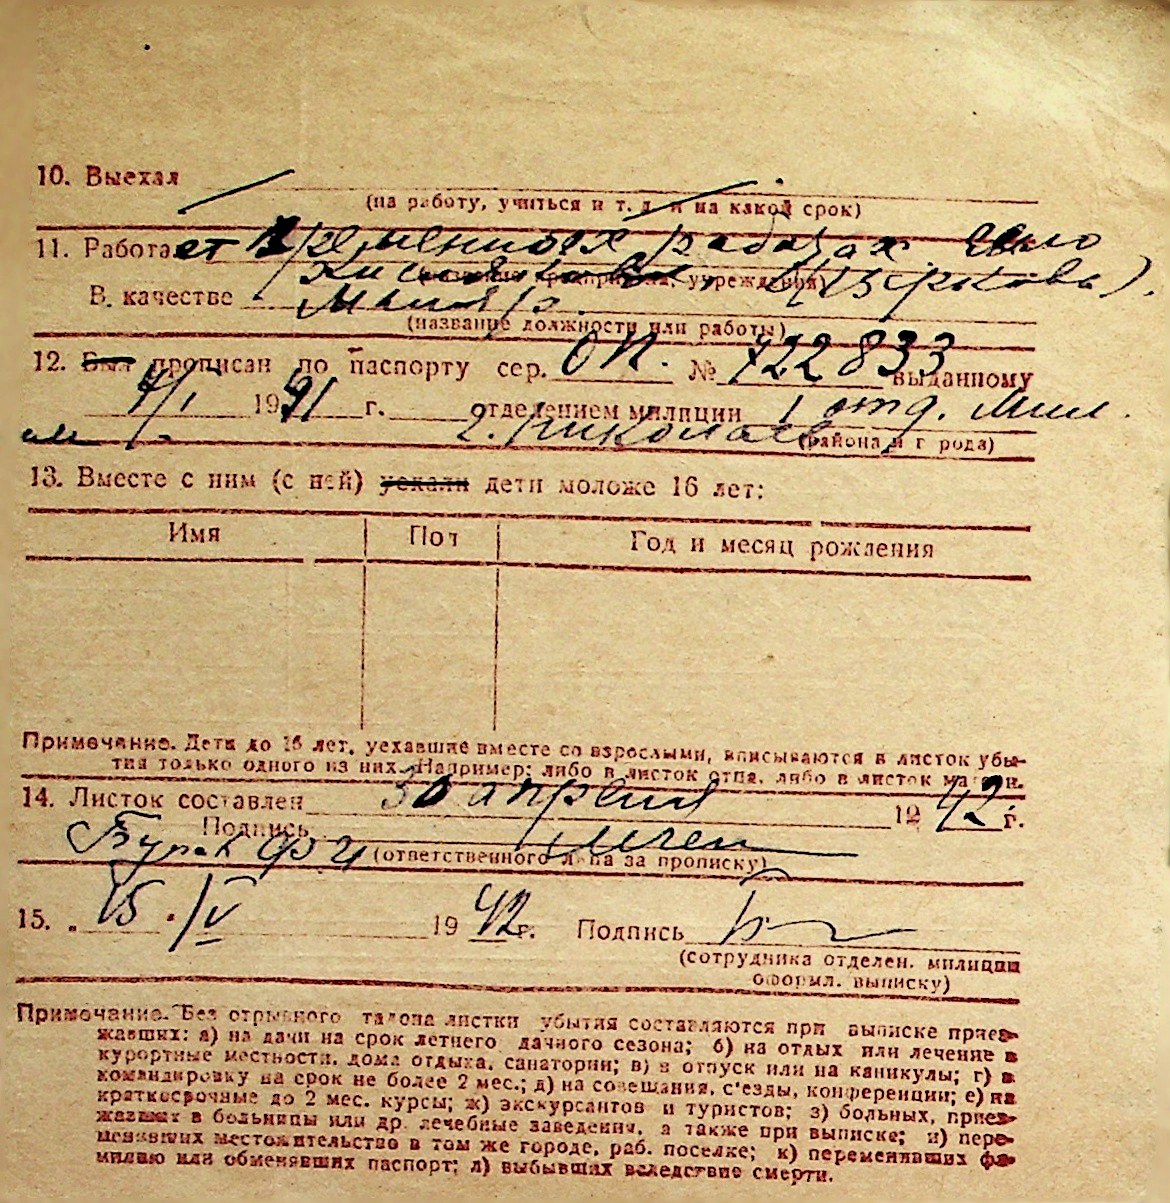 10. Выехал
(на работу, учиться и т. д. и на какой срок)
11. Работает временных работах
(название предприятия, учреждения)
В качестве Маляр.
(название должности или работы)
12. Был прописан по паспорту сер. ОП. № 722833 выданному
7/I 1941 г. отделением милиции 1 отд. Мил.
г. Николаев (района и города)
13. Вместе с ним (с ней) уехали дети моложе 16 лет:
Имя Пол Год и месяц рождения
Примечание. Дети до 16 лет, уехавшие вместе со взрослыми, вписываются в листок убы-
тия только одного из них. Например: либо в листок отца, либо в листок матери.
14. Листок составлен 30 апреля 1942 г.
Подпись
(ответственного лица за прописку)
15. „ 15./V 1942 г. Подпись
(сотрудника отделен. милиции
оформл. выписку)
Примечание. Без отрывного талона листки убытия составляются при выписке приез-
жавших: а) на дачи на срок летнего дачного сезона; б) на отдых или лечение в
курортные местности, дома отдыха, санатории; в) в отпуск или на каникулы; г) в
командировку на срок не более 2 мес.; д) на совещания, с'езды, конференции; е) на
краткосрочные до 2 мес. курсы; ж) экскурсантов и туристов; з) больных, приез-
жавших в больницы или др. лечебные заведения, а также при выписке; и) пере-
менивших местожительство в том же городе, раб. поселке; к) переменивших фа-
милию или обменявших паспорт; л) выбывших вследствие смерти.